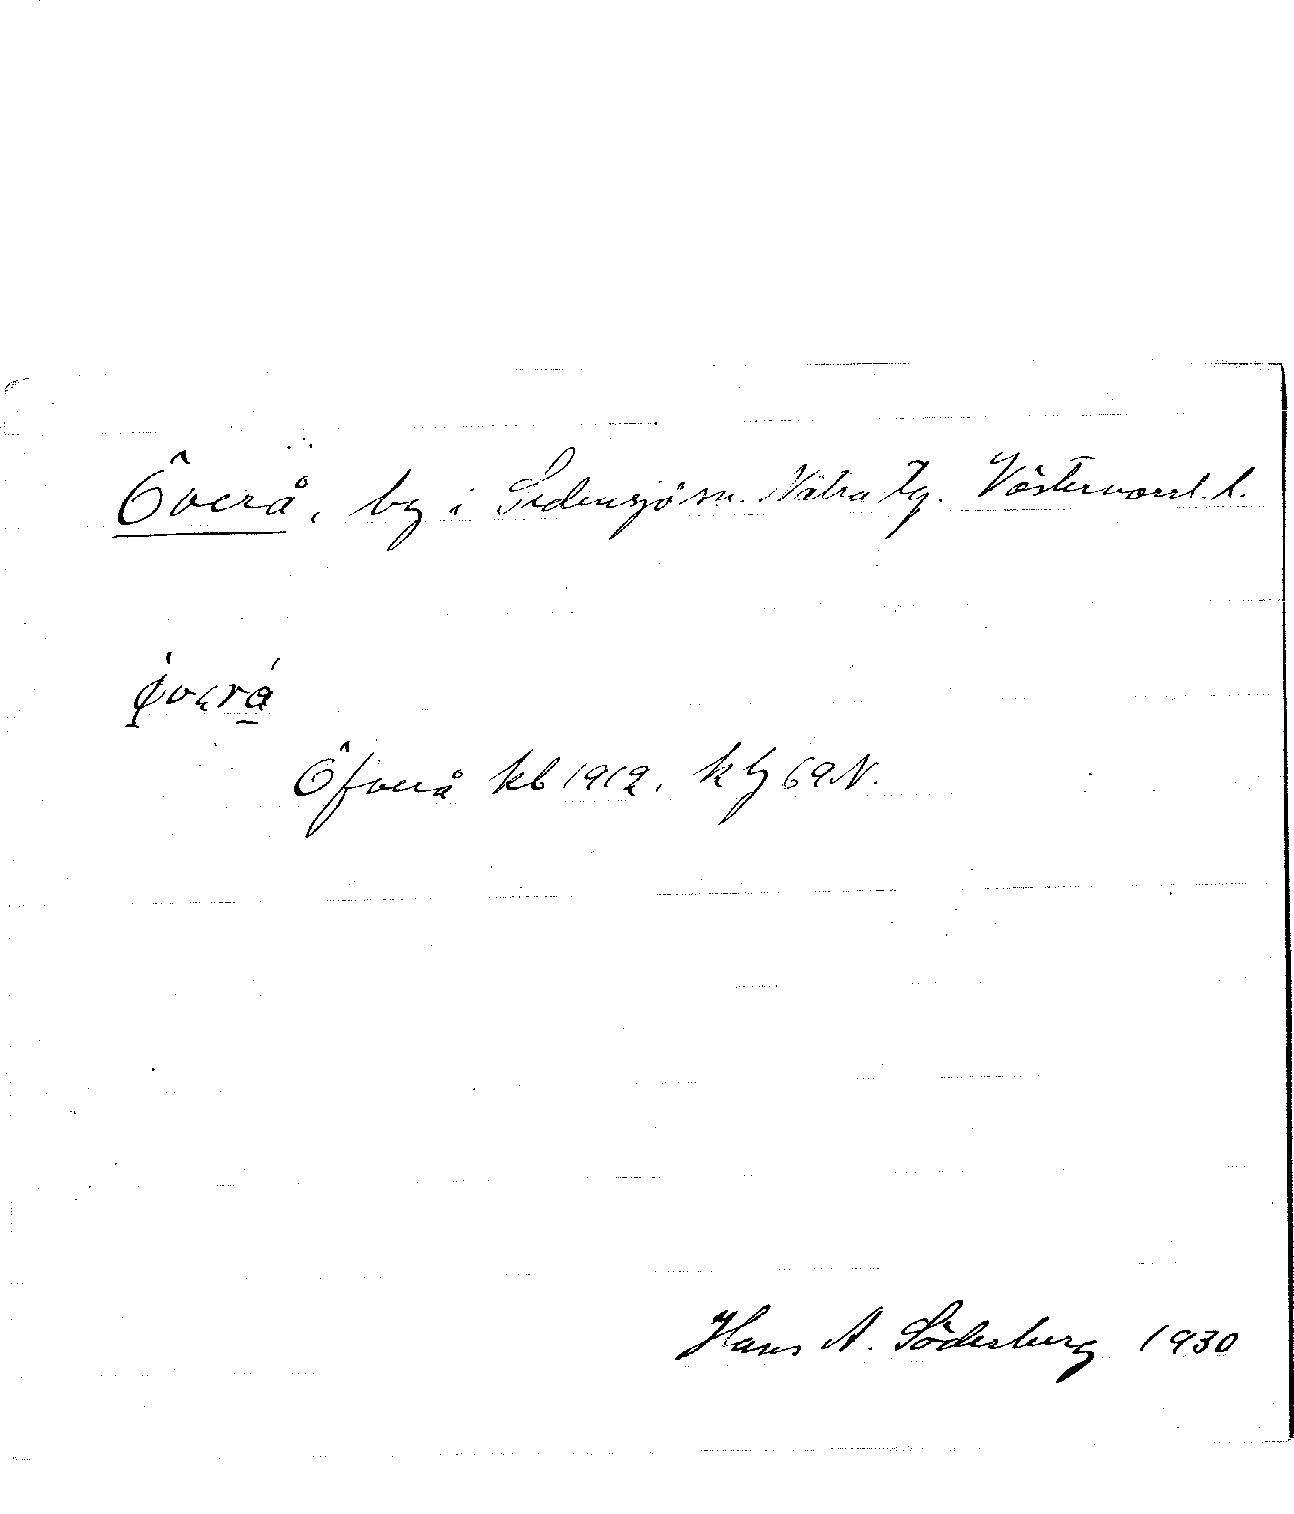 Överå, by i Sidensjö sn. Nätra tg. Västernorrl. l.
Öfverå kb 1912.
Hans A. Söderberg 1930